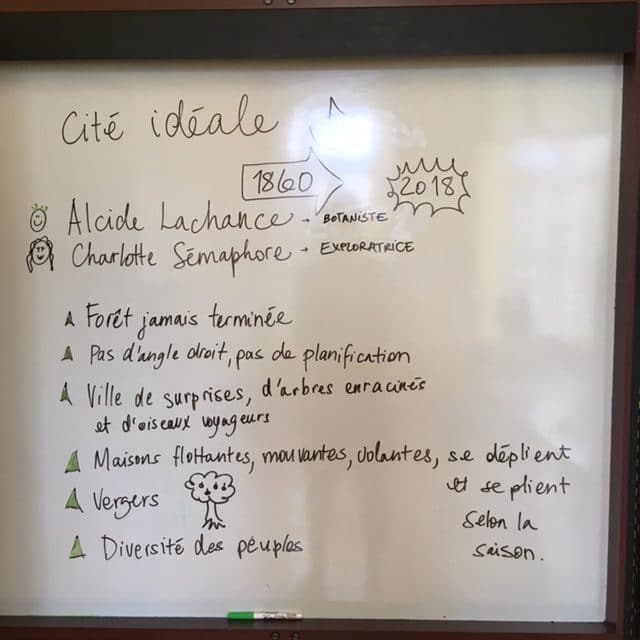 Cité idéale
1860
2018
Alcide Lachance → BOTANISTE
Charlotte Sémaphore → EXPLORATRICE
Forêt jamais terminée
Pas d'angle droit, pas de planification
Ville de surprises, d'arbres enracinés
et d'oiseaux voyageurs
Maisons flottantes, mouvantes, volantes, se déplient
et se plient
selon la
saison.
Vergers
Diversité des peuples